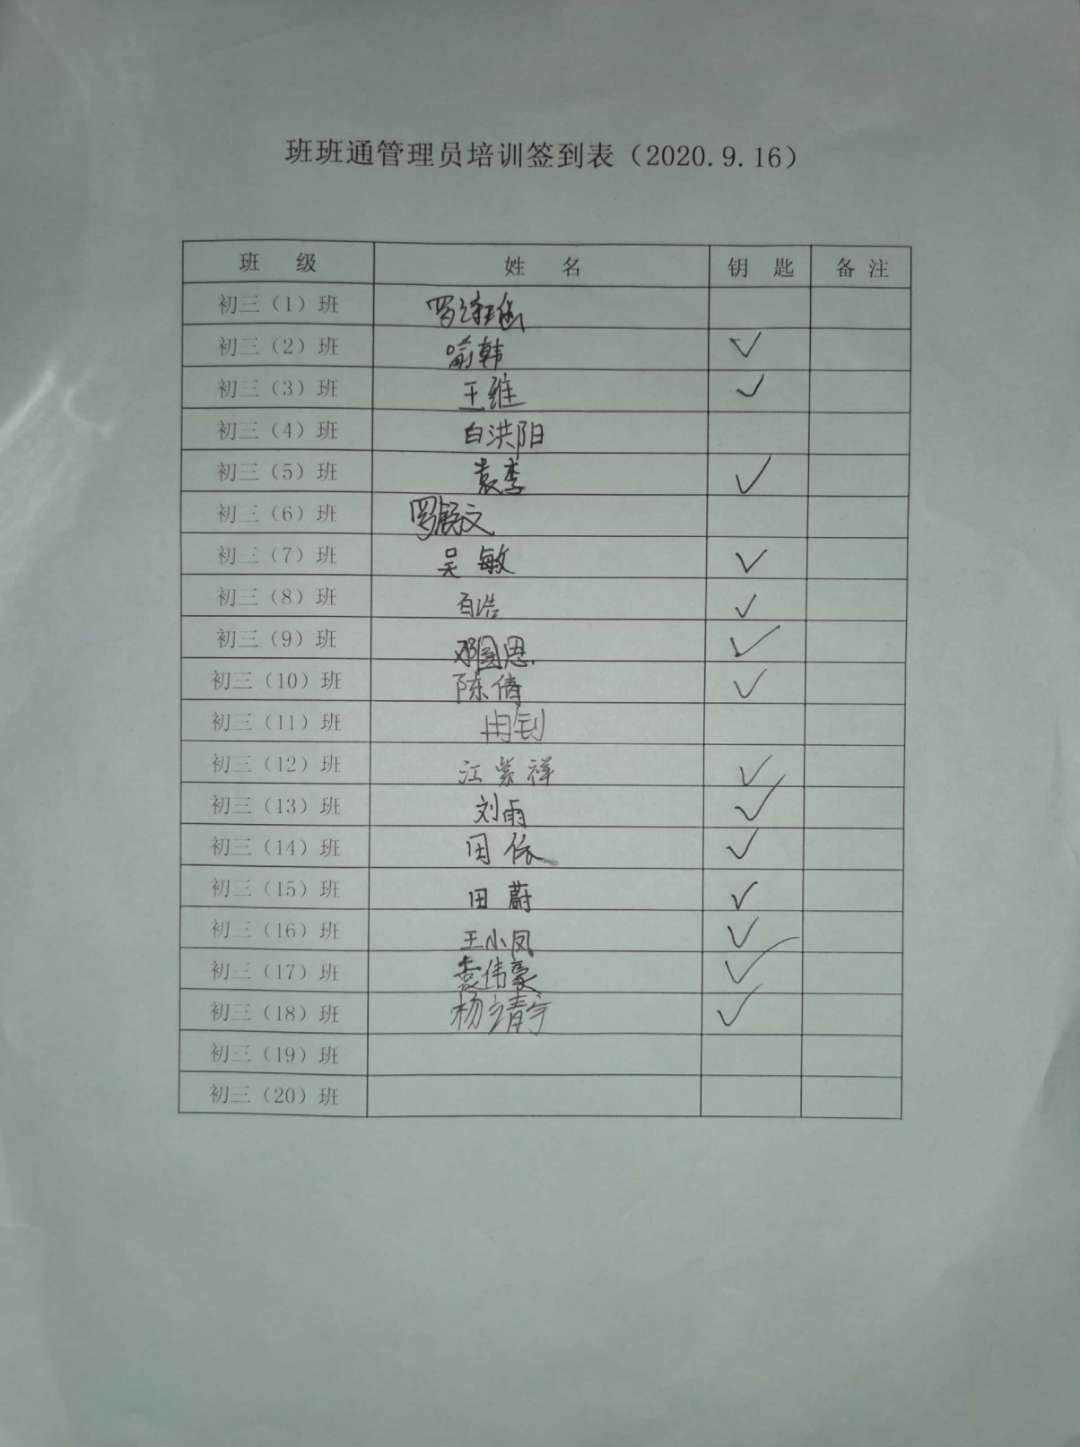 班班通管理员培训签到表（2020.9.16）
班 级 姓 名 钥 匙 备 注
初三（1）班 罗
初三（2）班 喻韩 ✓
初三（3）班 王维 ✓
初三（4）班 白洪阳
初三（5）班 袁李 ✓
初三（6）班 罗舒文
初三（7）班 吴敏 ✓
初三（8）班 浩 ✓
初三（9）班 邓国恩 ✓
初三（10）班 陈倩 ✓
初三（11）班 冉钊
初三（12）班 江 祥 ✓
初三（13）班 刘雨 ✓
初三（14）班 田依 ✓
初三（15）班 田蔚 ✓
初三（16）班 王小凤 ✓
初三（17）班 袁伟豪 ✓
初三（18）班 杨 宇 ✓
初三（19）班
初三（20）班